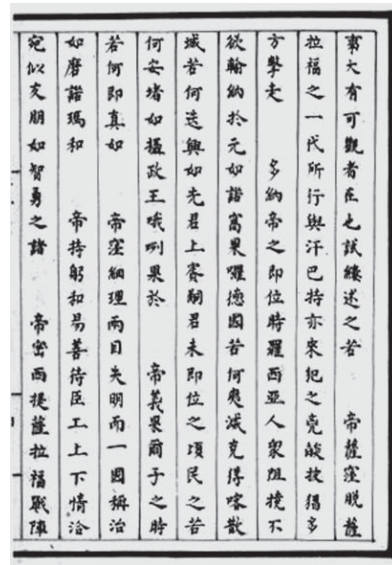 事大有可觀者在也試縷述之若　帝薩窪脫薩
拉福之一代所行與汗巴持亦來犯之兇燄披猖多
方擊走　多納帝之即位時羅西亞人衆阻撓不
欲輸納於元如諾富果囉德國若何夷滅克得喀散
城若何迭興如先君上賽嗣君未即位之頃民之若
何安堵如攝政王哦咧果於　帝義果爾子之時
若何即真如　帝窪細理兩目失明而一國稱治
如磨諾瑪和　帝持躬和易善待臣工上下情洽
宛似友朋如智勇之諸　帝密西提薩拉福戰陣